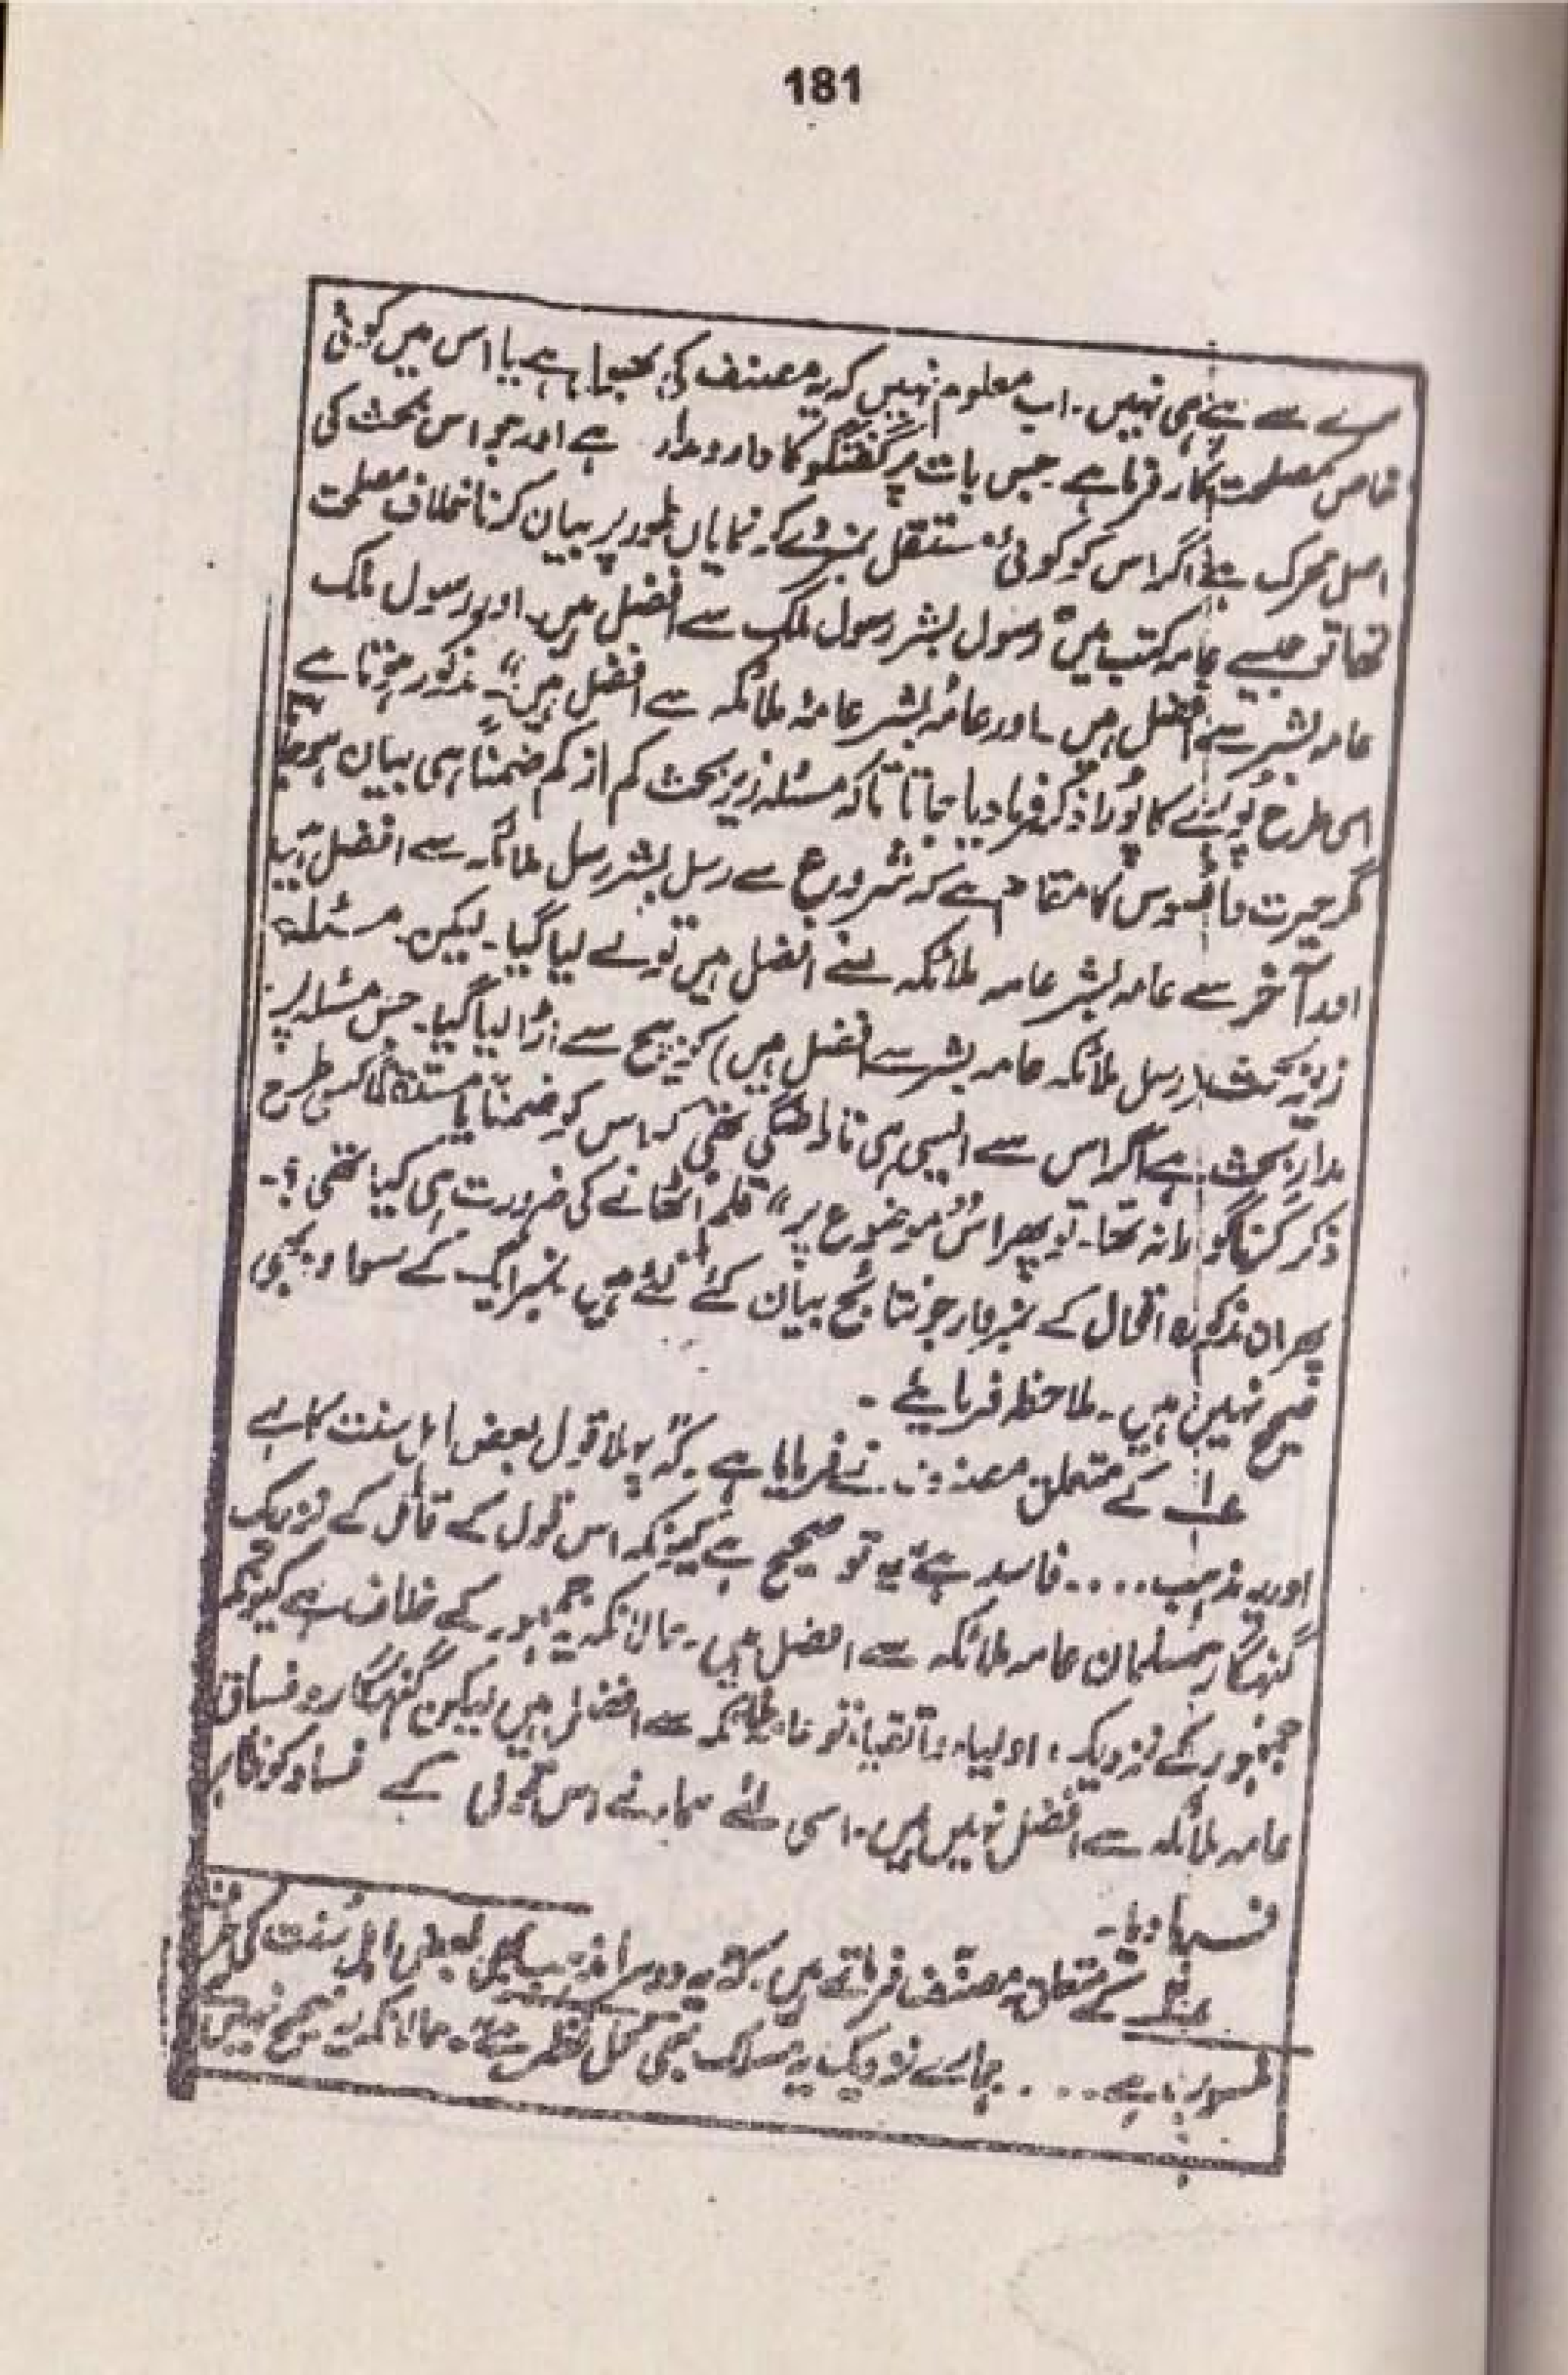 181
سرے سے ہے ہی نہیں۔ اب معلوم نہیں کہ یہ مصنف کی بھول ہے یا اس میں کوئی
خاص مصلحت کار فرما ہے جس بات پر گفتگو کا دارومدار ہے اور جو اس بحث کی
اصل محرک ہے اگر اس کو کوئی مستقل نمبر دے کر نمایاں طور پر بیان کرنا خلاف مصلحت
تھا تو جیسے عامہ کتب میں "رسول بشر رسول ملک سے افضل ہیں۔ اور رسول ملک
عامہ بشر سے افضل ہیں۔ اور عامہ بشر عامہ ملائکہ سے افضل ہیں"۔ مذکور ہوتا ہے
اسی طرح پورے کا پورا ذکر فرما دیا جاتا تاکہ مسئلہ زیر بحث کم از کم ضمناً ہی بیان ہو جاتا
مگر حیرت و افسوس کا مقام ہے کہ شروع سے رسل بشر رسل ملائکہ سے افضل ہیں
اور آخر سے عامہ بشر عامہ ملائکہ سے افضل ہیں تو لے لیا گیا۔ لیکن مسئلہ
زیر بحث (رسل ملائکہ عامہ بشر سے افضل ہیں) کو بیچ سے اڑا لیا گیا۔ جس مسئلہ پر
مدار بحث ہے اگر اس سے ایسی ہی ناراضگی تھی کہ اس کو ضمناً یا مستقلاً کسی طرح
ذکر کرنا گوارا نہ تھا۔ تو پھر اس موضوع پر "قلم اٹھانے کی ضرورت ہی کیا تھی؟۔
پھر ان مذکورہ اقوال کے نمبروار جو نتائج بیان کئے گئے ہیں نمبر ایک کے سوا وہ بھی
صحیح نہیں ہیں۔ ملاحظہ فرمایئے۔
۱ کے متعلق مصنف نے فرمایا ہے۔ کہ "پہلا قول بعض اہل سنت کا ہے
اور یہ مذہب .... فاسد ہے" یہ تو صحیح ہے کیونکہ اس قول کے قائل کے نزدیک
گنہگار مسلمان عامہ ملائکہ سے افضل ہیں۔ حالانکہ یہ جمہور کے خلاف ہے کیونکہ
جمہور کے نزدیک، اولیاء و اتقیاء تو عامہ ملائکہ سے افضل ہیں لیکن گنہگار و فساق
عامہ ملائکہ سے افضل نہیں ہیں۔ اسی لئے علماء نے اس قول کے فساد کو ظاہر
فرما دیا۔
کے متعلق مصنف فرماتے ہیں۔ کہ "یہ دوسرا مذہب بھی بعض اہل سنت کی طرف
منسوب ہے .... ہمارے نزدیک یہ مسلک بھی محل نظر ہے"۔ حالانکہ یہ صحیح نہیں